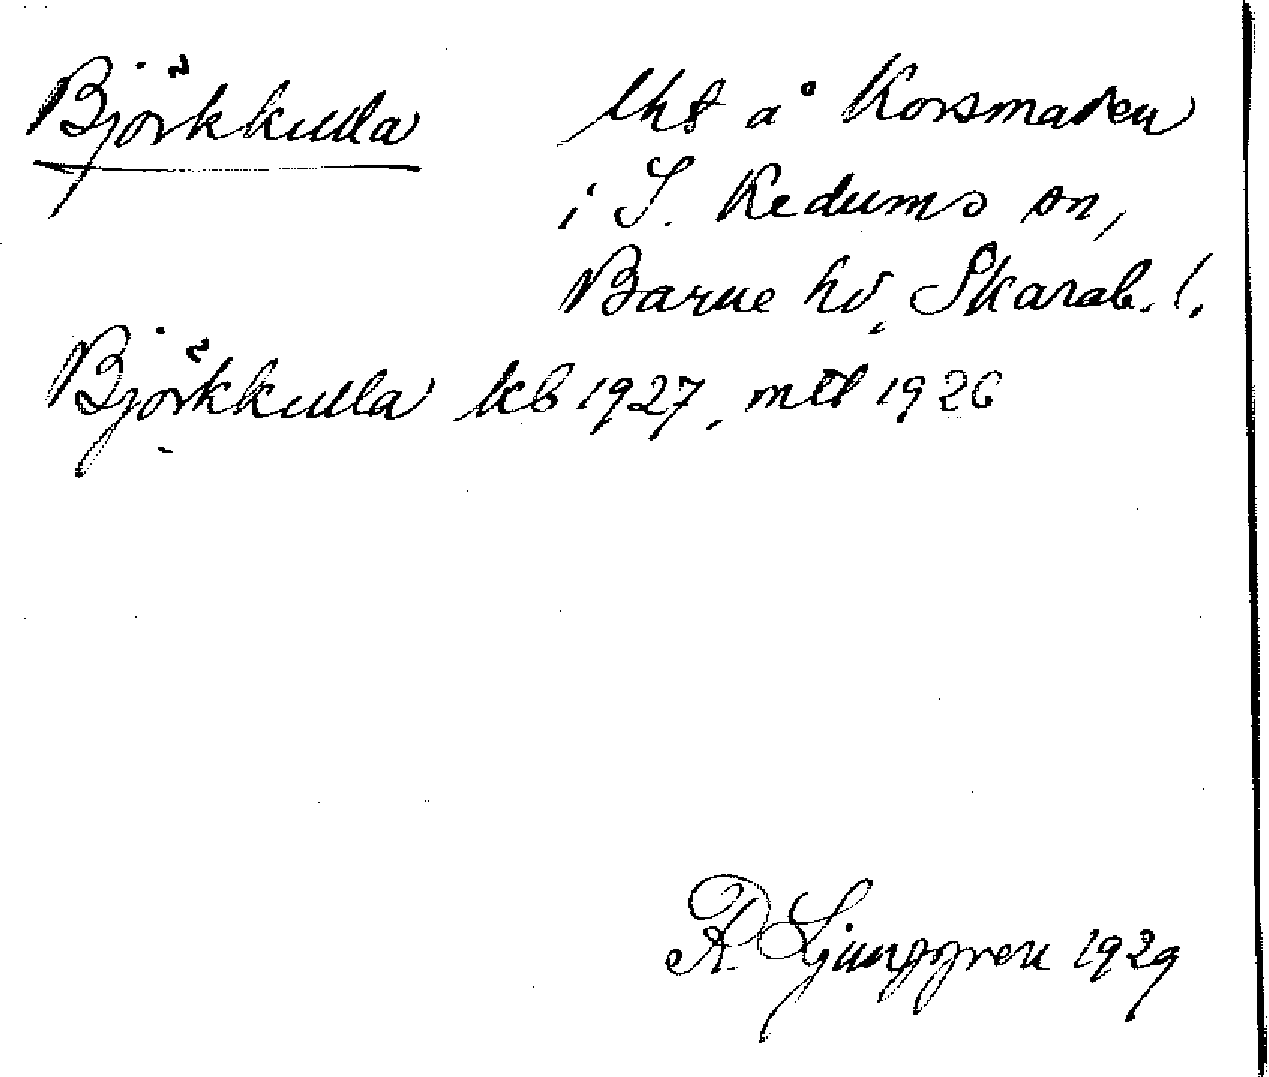 Björkkulla lht å Korsmaden
i S. Kedums sn,
Barne hd, Skarab. l.
Björkkulla kb 1927, mtl 1926
R. Ljunggren 1929